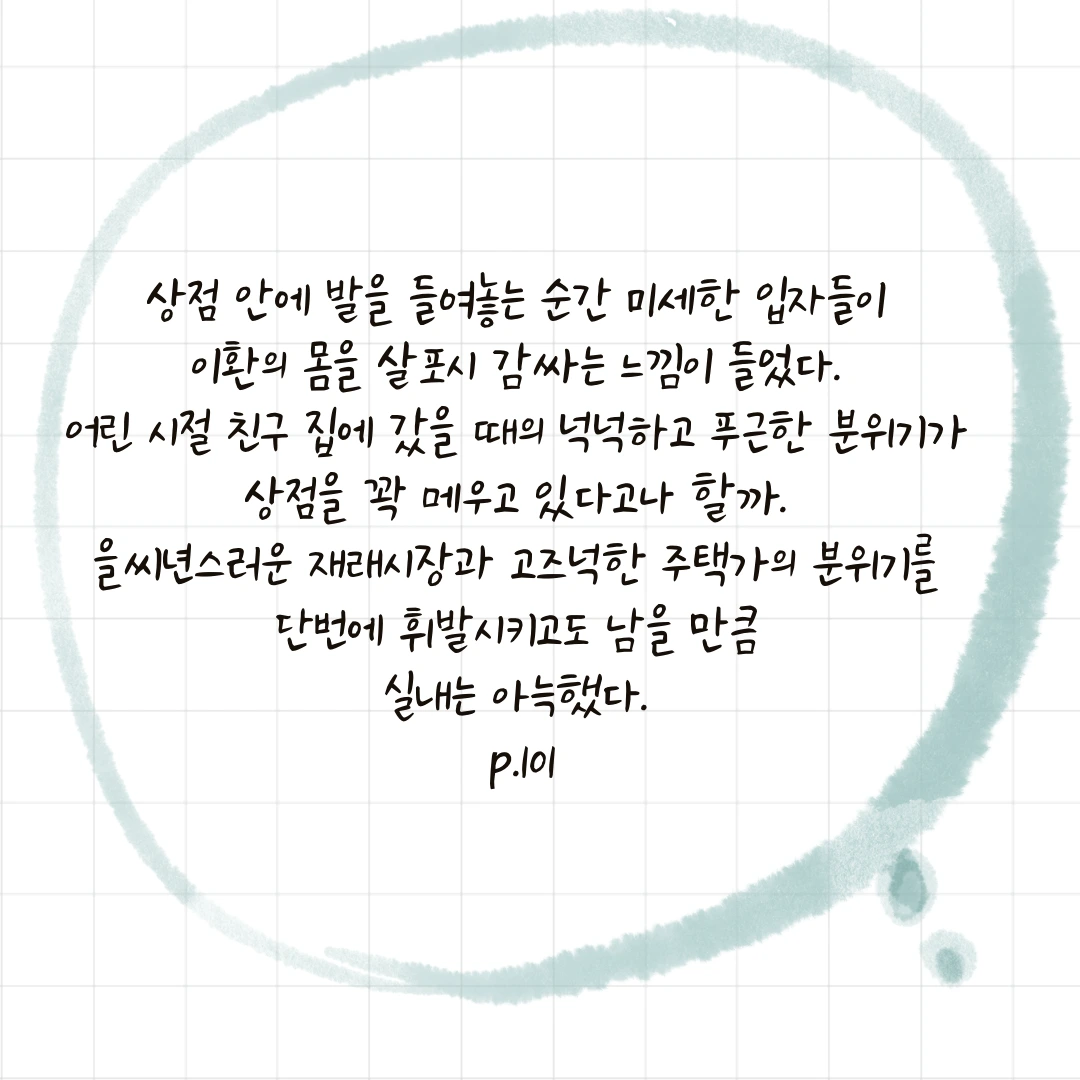 상점 안에 발을 들여놓는 순간 미세한 입자들이
이환의 몸을 살포시 감싸는 느낌이 들었다.
어린 시절 친구 집에 갔을 때의 넉넉하고 푸근한 분위기가
상점을 꽉 메우고 있다고나 할까.
을씨년스러운 재래시장과 고즈넉한 주택가의 분위기를
단번에 휘발시키고도 남을 만큼
실내는 아늑했다.
p.101